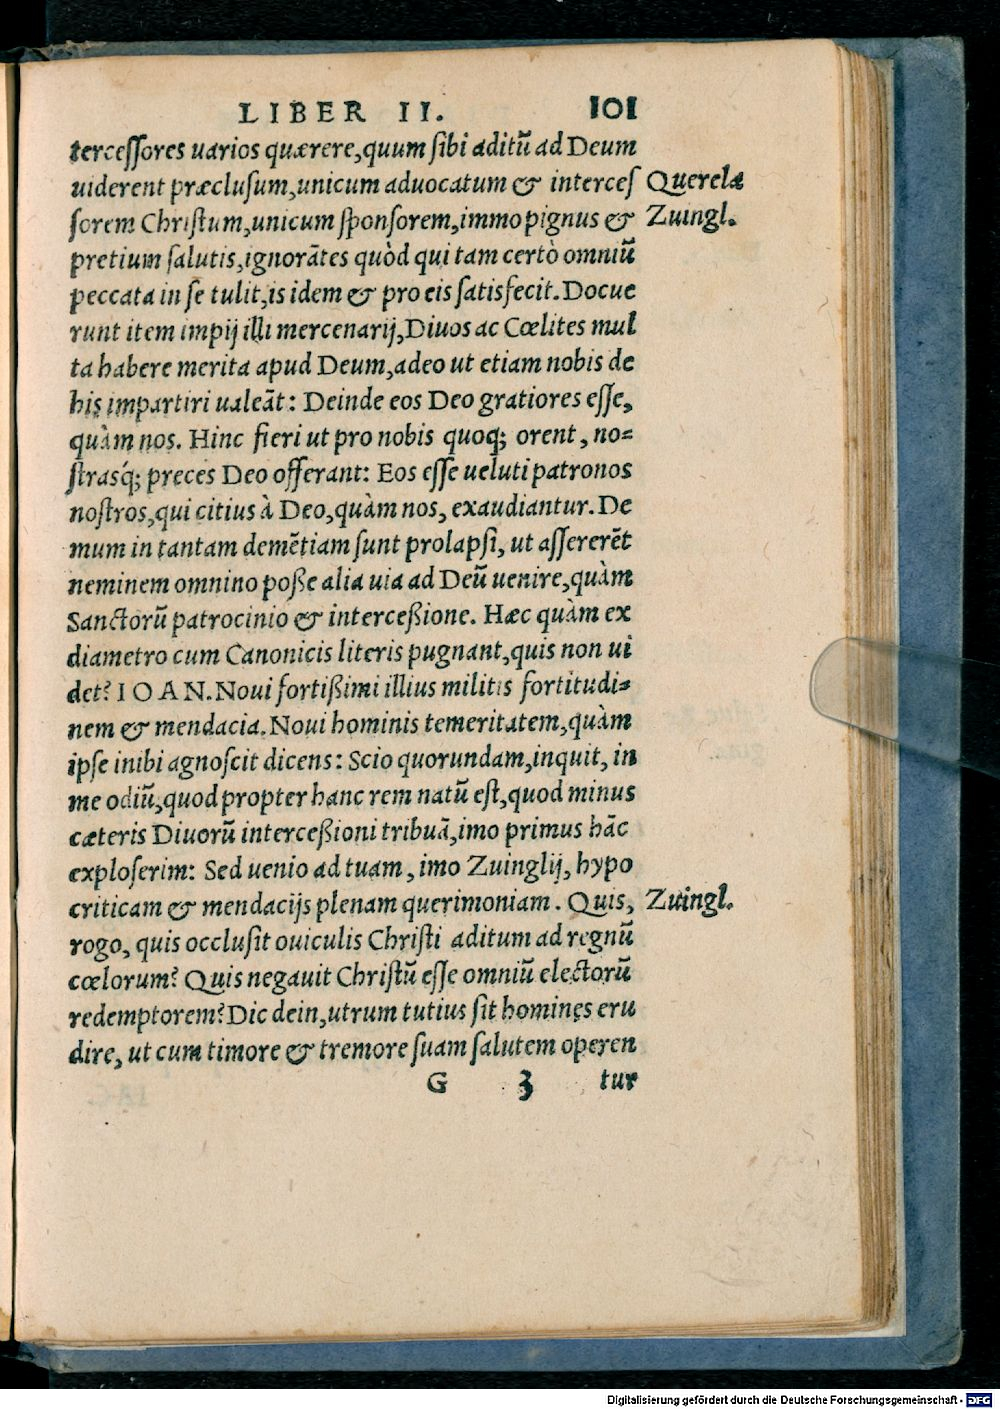 LIBER II. 101
terceſſores uarios quærere,quum ſibi aditũ ad Deum
uiderent præcluſum,unicum aduocatum & interceſ Querelæ
ſorem Chriſtum,unicum ſponſorem,immo pignus & Zuingl.
pretium ſalutis,ignorãtes quòd qui tam certò omniũ
peccata in ſe tulit,is idem & pro eis ſatisfecit. Docue
runt item impij illi mercenarij,Diuos ac Cœlites mul
ta habere merita apud Deum,adeo ut etiam nobis de
his impartiri ualeãt: Deinde eos Deo gratiores eſſe,
quàm nos. Hinc fieri ut pro nobis quoq; orent, no=
ſtrasq́; preces Deo offerant: Eos eſſe ueluti patronos
noſtros,qui citius à Deo,quàm nos, exaudiantur. De
mum in tantam demẽtiam ſunt prolapſi, ut aſſererẽt
neminem omnino poße alia uia ad Deũ uenire,quàm
Sanctorũ patrocinio & interceßione. Hæc quàm ex
diametro cum Canonicis literis pugnant,quis non ui
det? IOAN. Noui fortißimi illius militis fortitudi=
nem & mendacia. Noui hominis temeritatem,quàm
ipſe inibi agnoſcit dicens: Scio quorundam,inquit, in
me odiũ,quod propter hanc rem natũ eſt,quod minus
cæteris Diuorũ interceßioni tribuã,imo primus hãc
exploſerim: Sed uenio ad tuam, imo Zuinglij, hypo
criticam & mendacijs plenam querimoniam. Quis, Zuingl.
rogo, quis occluſit ouiculis Chriſti aditum ad regnũ
cœlorum? Quis negauit Chriſtũ eſſe omniũ electorũ
redemptorem? Dic dein,utrum tutius ſit homines eru
dire, ut cum timore & tremore ſuam ſalutem operen
G 3 tur
Digitalisierung gefördert durch die Deutsche Forschungsgemeinschaft - DFG